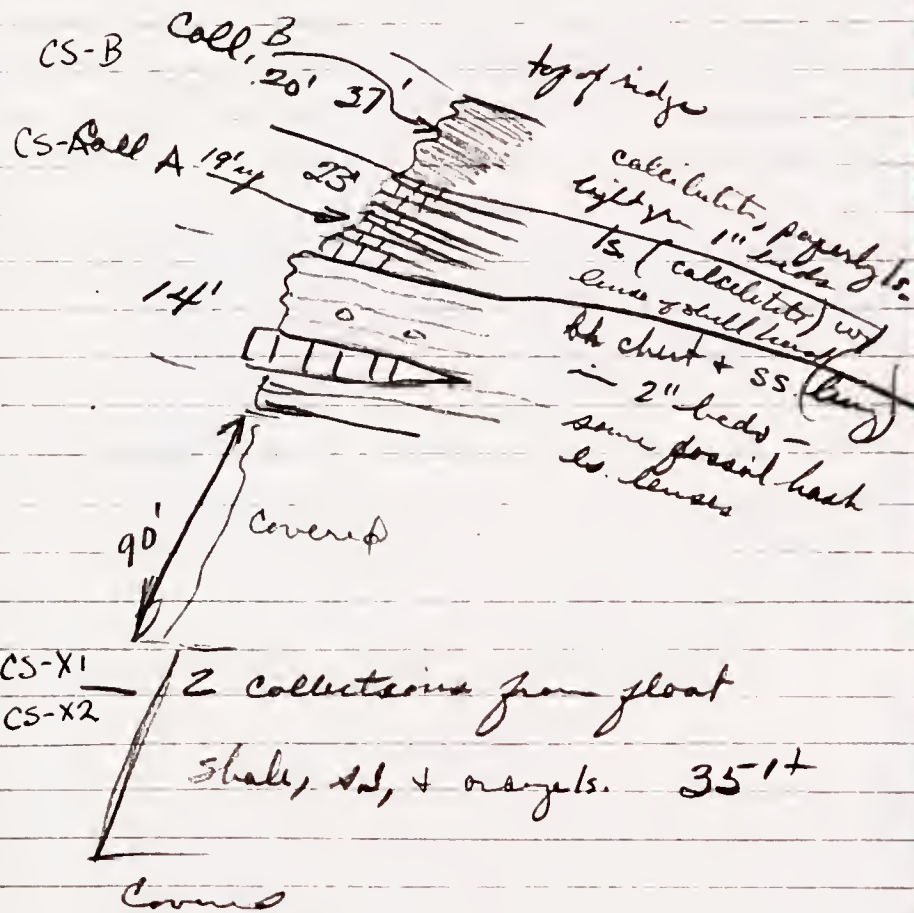 CS-B Coll. B
20' 37'
top of ridge
CS-A Coll A 19' up 23'
calcilutite, papery ls.
light grn 1" beds
14'
ls. (calcilutite) w/
lense of shell hash
bk chert + ss.
in 2" beds -
some fossil hash
ls. lenses
90' Covered
CS-X1
CS-X2
2 collections from float
shale, sd, + orange ls. 35'+
Covered